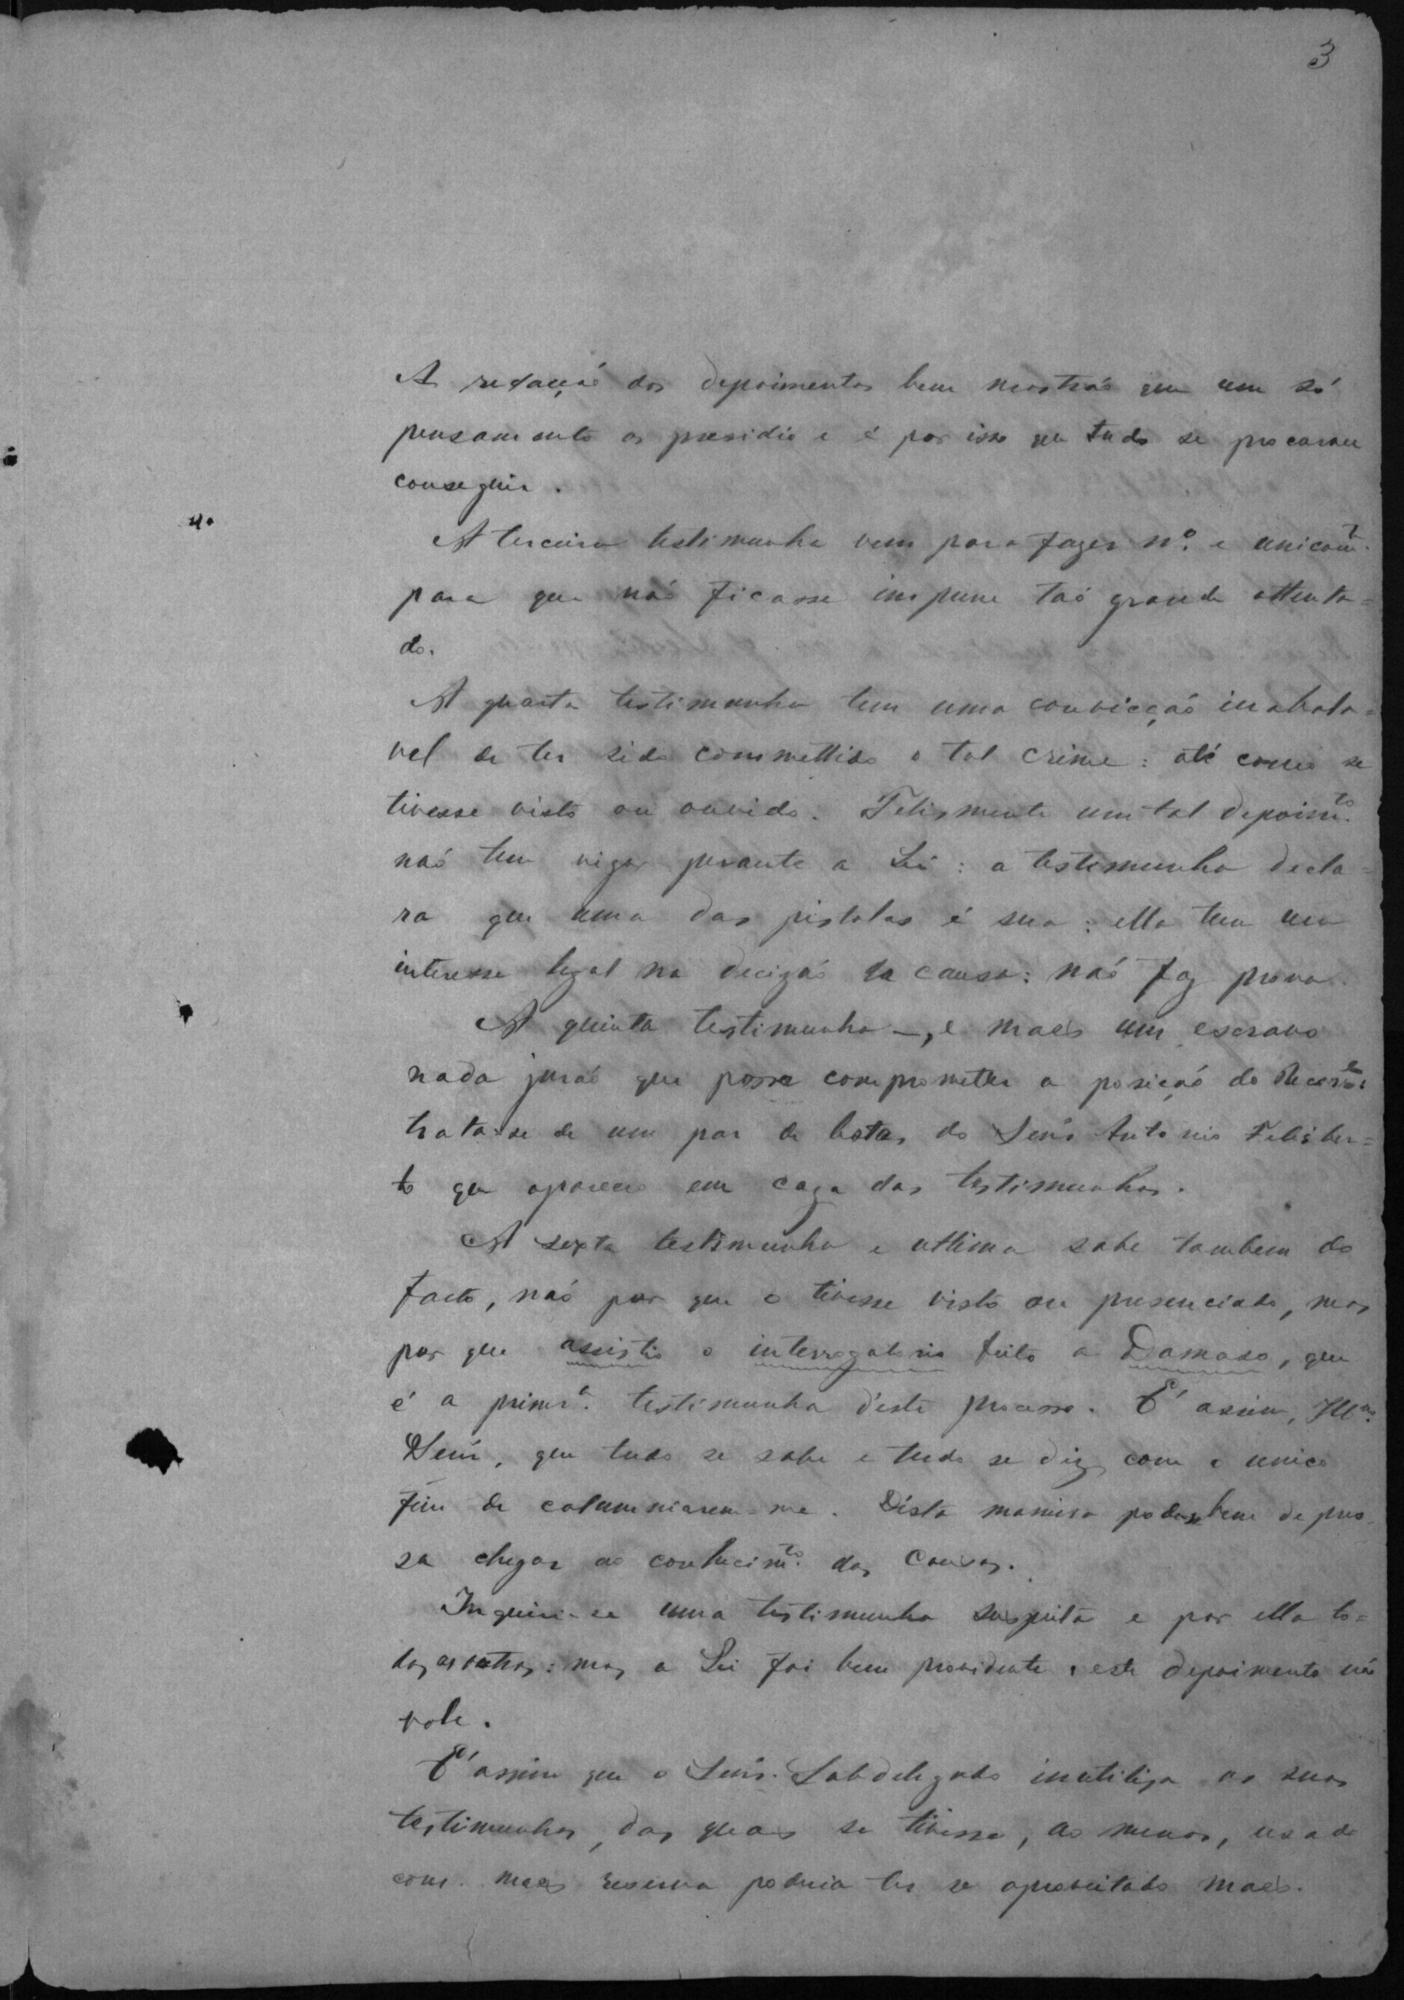 3
A redacção dos depoimentos bem mostrão que um só
pensamento os presidio e é por isso que tudo se procurou
conseguir.
A terceira testimunha vem para fazer nº. e unicamte.
para que não ficasse impune tão grande attenta=
do.
A quarta testimunha tem uma convicção inabala=
vel de ter sido commettido o tal crime: até como se
tivesse visto ou ouvido. Felismente um tal depoimto.
não tem vigor perante a Lei: a testimunha decla=
ra que uma das pistolas é sua: ella tem um
interesse legal na decizão da causa: não faz prova.
A quinta testimunha —, e mais um escravo
nada jurão que possa comprometter a posição do Recorrte:
trata-se de um par de botas do Senr Antonio Felisber=
to que apareceo em caza das testimunhas.
A sexta testimunha e ultima sabe tambem do
facto, não por que o tivesse visto ou presenciado, mas
por que assistio o interrogatorio feito a Damaso, que
é a primra. testimunha d'este processo. É assim, Illmo.
Senr, que tudo se sabe e tudo se diz com o unico
fim de calumniarem-me. Désta maneira pode-se bem depres=
sa chegar ao conhecimto. das Cousas.
Inquiri-se uma testimunha suspeita e por ella to=
das as outras: mas a Lei foi bem providente: este depoimento não
vale.
É assim que o Senr. Subdelegado inutiliza as suas
testimunhas, das quaes se tivesse, ao menos, usado
com mais reserva poderia ter se aproveitado mais.